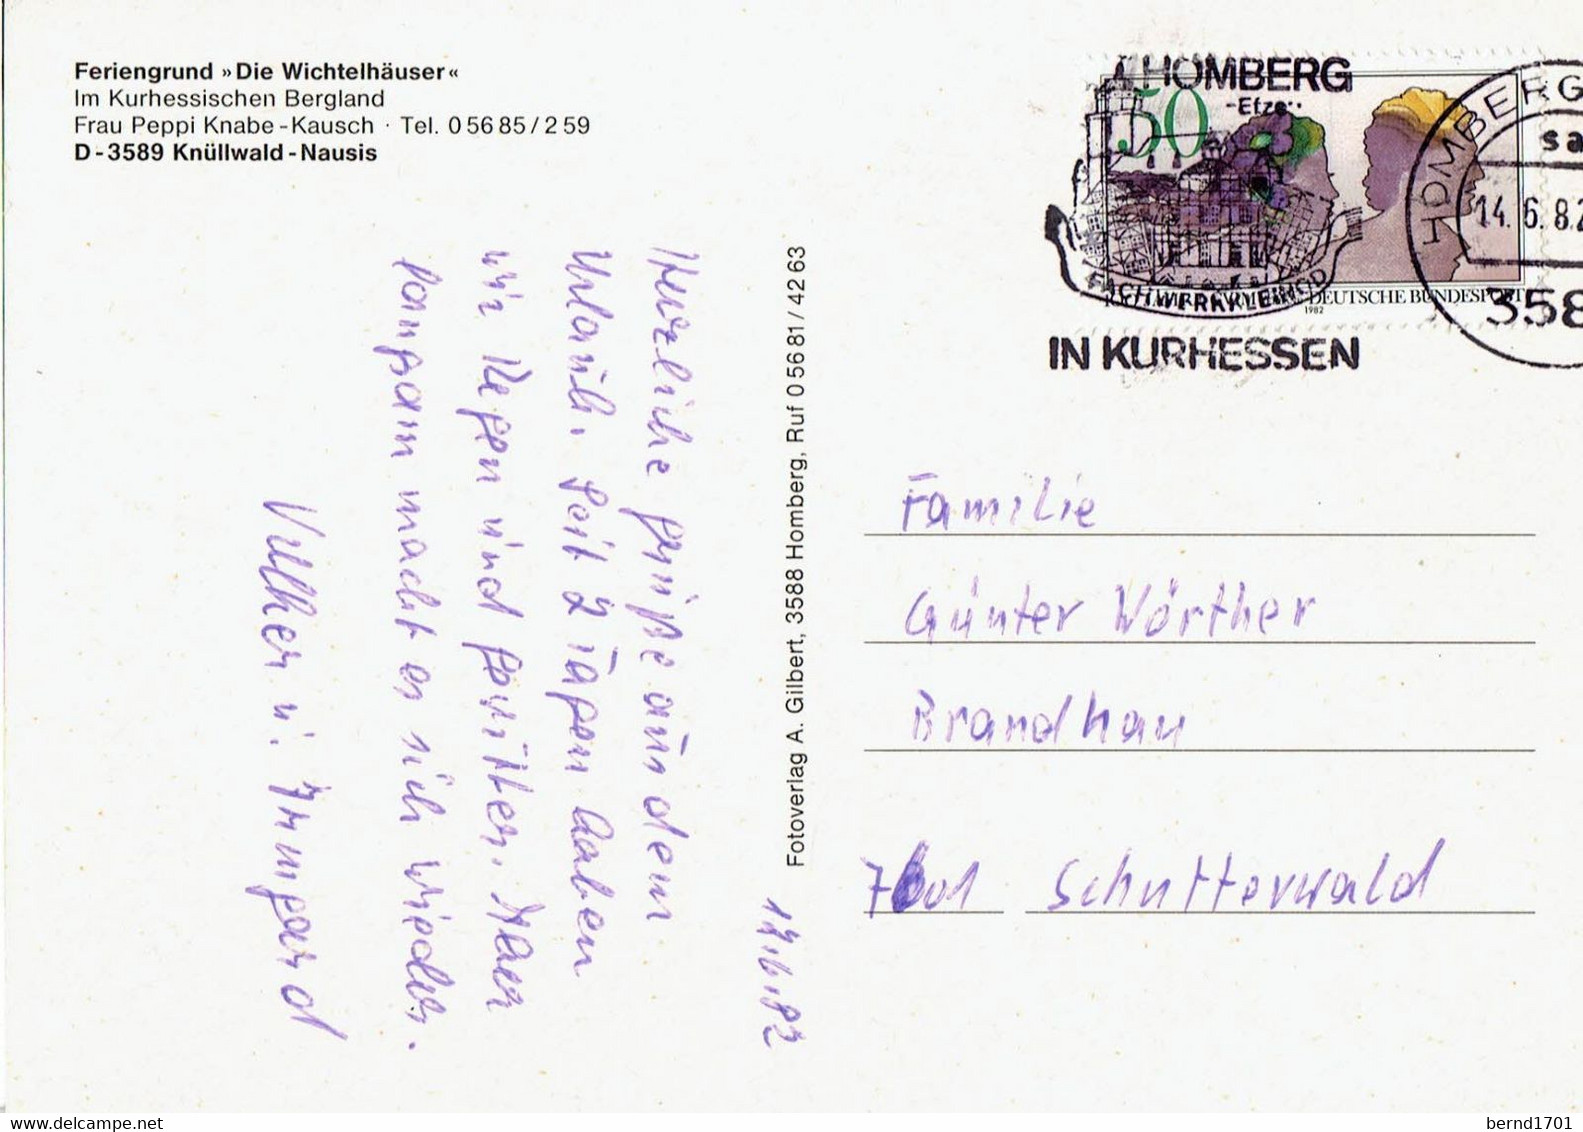 Feriengrund »Die Wichtelhäuser«
Im Kurhessischen Bergland
Frau Peppi Knabe-Kausch · Tel. 0 56 85 / 2 59
D-3589 Knüllwald-Nausis
HOMBERG
-Efze-
50
FACHWERKKLEINOD
IN KURHESSEN
DEUTSCHE BUNDESPOST
1982
HOMBERG
14.6.82
358
Herzliche Grüße aus dem
Urlaub. Seit 2 Tagen haben
wir Regen und Gewitter. Aber
langsam macht es sich wieder.
u. Irmgard
Fotoverlag A. Gilbert, 3588 Homberg, Ruf 0 56 81 / 42 63
Familie
Günter Wörther
Brandhau
7601 Schutterwald
www.delcampe.net
bernd1701